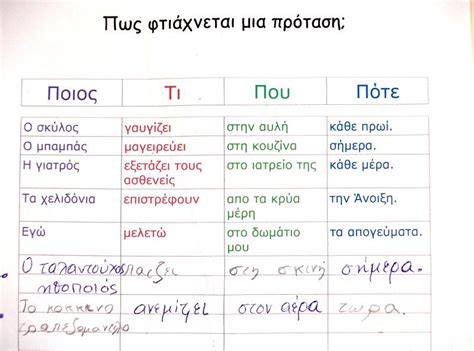 Πως φτιάχνεται μια πρόταση;
Ποιος Τι Που Πότε
Ο σκύλος γαυγίζει στην αυλή κάθε πρωί.
Ο μπαμπάς μαγειρεύει στη κουζίνα σήμερα.
Η γιατρός εξετάζει τους στο ιατρείο της κάθε μέρα.
ασθενείς
Τα χελιδόνια επιστρέφουν απο τα κρύα την Άνοιξη.
μέρη
Εγώ μελετώ στο δωμάτιο τα απογεύματα.
μου
Ο ταλαντούχος παιζει στη σκινή σήμερα.
ηθοποιός
Το κοκκινο ανεμίζει στον αέρα τωρα.
τραπεζομαντιλο